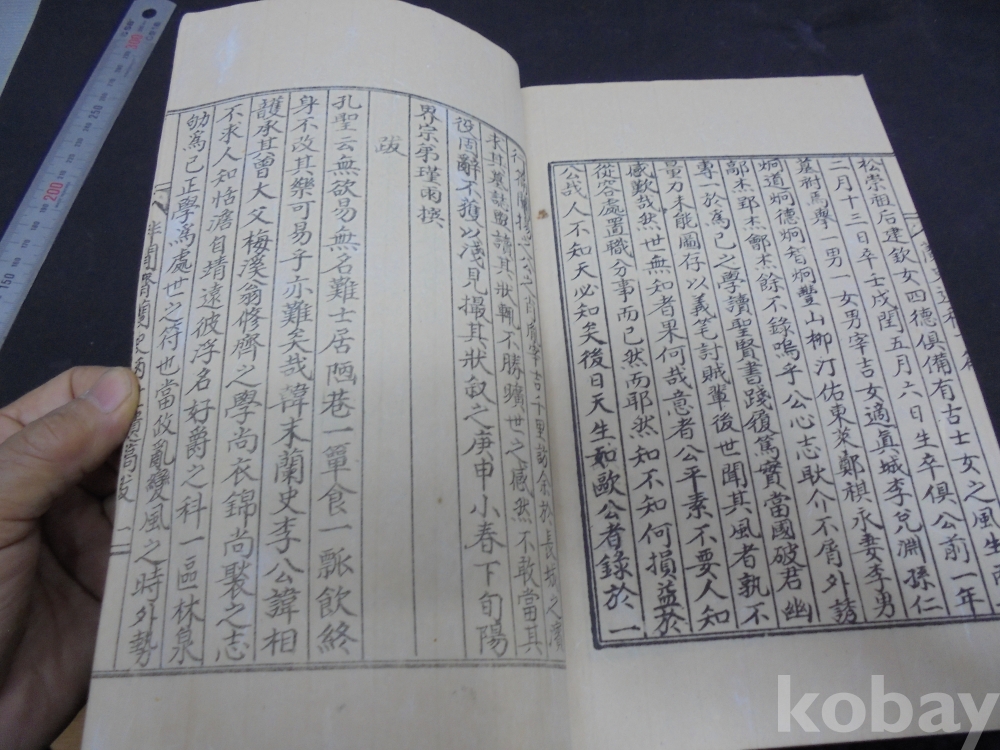 松崇祖后建欽女四德俱備有古士女之風生
二月十三日卒壬戌閏五月六日生卒俱公前一年
墓祔焉擧一男一女男宰吉女適眞城李兌淵孫仁
炯道炯德炯香炯豐山柳汀佑東萊鄭祺永妻李勇
鄗杰郅杰鄯杰餘不錄嗚乎公心志耿介不屑外誘
專一於爲己之學讀聖賢書踐履篤實當國破君幽
量力未能圖存以義笔討賊輩後世聞其風者孰不
感歎哉然世無知者果何哉意者公平素不要人知
從容處置職分事而已然而耶然知不知何損益於
公哉人不知天必知矣後日天生如歐公者錄於一
吉千里訪余於長坡之濱
求其墓誌噐讀其狀輒不勝曠世之感然不敢當其
役固辭不獲以淺見撮其狀叙之庚申小春下旬陽
界宗弟瑾雨撰
跋
孔聖云無欲易無名難士居陋巷一簞食一瓢飮終
身不改其樂可易乎亦難矣哉韓末蘭史李公諱相
頀承其曾大父梅溪翁修齊之學尚衣錦尚褧之志
不求人知恬澹自靖遠彼浮名好爵之科一區林泉
劬爲己正學爲處世之符也當政亂變風之時外勢
150
200
250
kobay